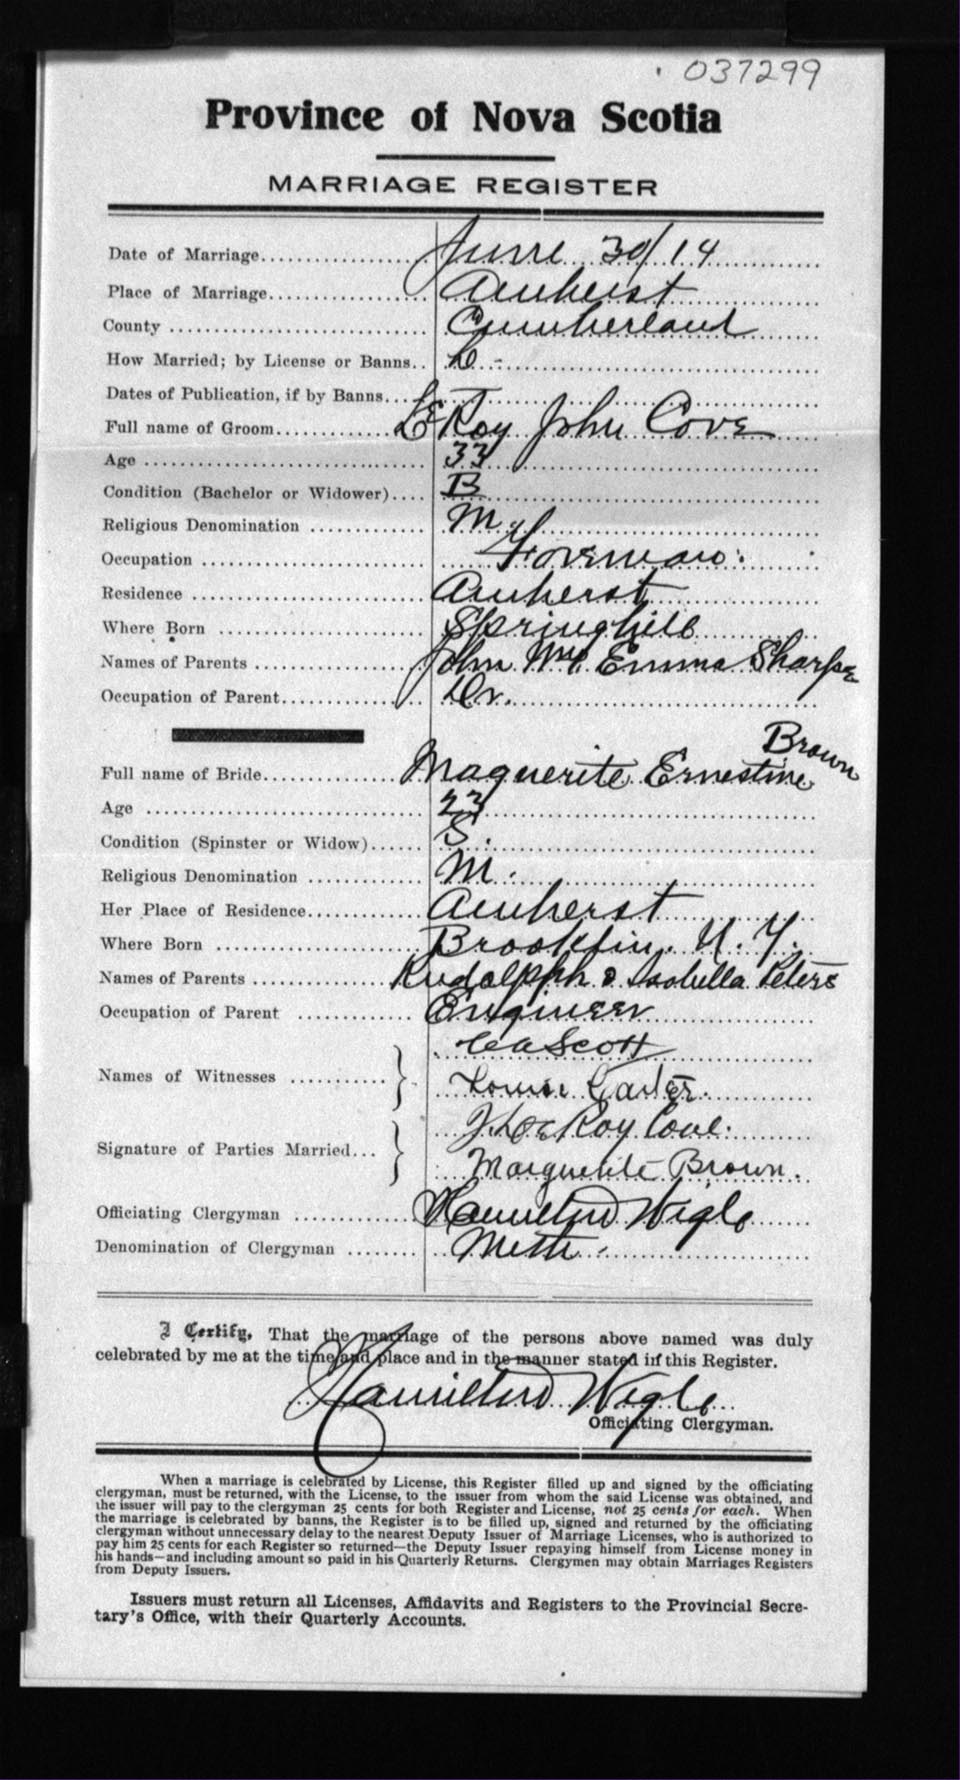 037299
Province of Nova Scotia
MARRIAGE REGISTER
Date of Marriage.................. June 30/14
Place of Marriage.................. Amherst
County .................. Cumberland
How Married; by License or Banns.. L -
Dates of Publication, if by Banns....
Full name of Groom.................. LeRoy John Cove
Age .................. 33
Condition (Bachelor or Widower).... B
Religious Denomination .................. M.
Occupation .................. Foreman.
Residence .................. Amherst
Where Born .................. Springhill
Names of Parents .................. John Emma Sharpe
Occupation of Parent.................. Dr.
Brown
Full name of Bride.................. Maguerite Ernestine
Age .................. 23
Condition (Spinster or Widow)...... S.
Religious Denomination .................. M.
Her Place of Residence.................. Amherst
Where Born .................. Brooklin, N. Y.
Names of Parents .................. Rudolpph & Isobella Peters
Occupation of Parent .................. Engineer
Scott
Names of Witnesses ..................
Carter.
LeRoy Cove.
Signature of Parties Married...
Marguerite Brown.
Officiating Clergyman .................. Hamilton Wigle
Denomination of Clergyman ........ Meth.
I Certify, That the marriage of the persons above named was duly
celebrated by me at the time and place and in the manner stated in this Register.
Hamilton Wigle
Officiating Clergyman.
When a marriage is celebrated by License, this Register filled up and signed by the officiating
clergyman, must be returned, with the License, to the issuer from whom the said License was obtained, and
the issuer will pay to the clergyman 25 cents for both Register and License, not 25 cents for each. When
the marriage is celebrated by banns, the Register is to be filled up, signed and returned by the officiating
clergyman without unnecessary delay to the nearest Deputy Issuer of Marriage Licenses, who is authorized to
pay him 25 cents for each Register so returned—the Deputy Issuer repaying himself from License money in
his hands—and including amount so paid in his Quarterly Returns. Clergymen may obtain Marriages Registers
from Deputy Issuers.
Issuers must return all Licenses, Affidavits and Registers to the Provincial Secre-
tary's Office, with their Quarterly Accounts.